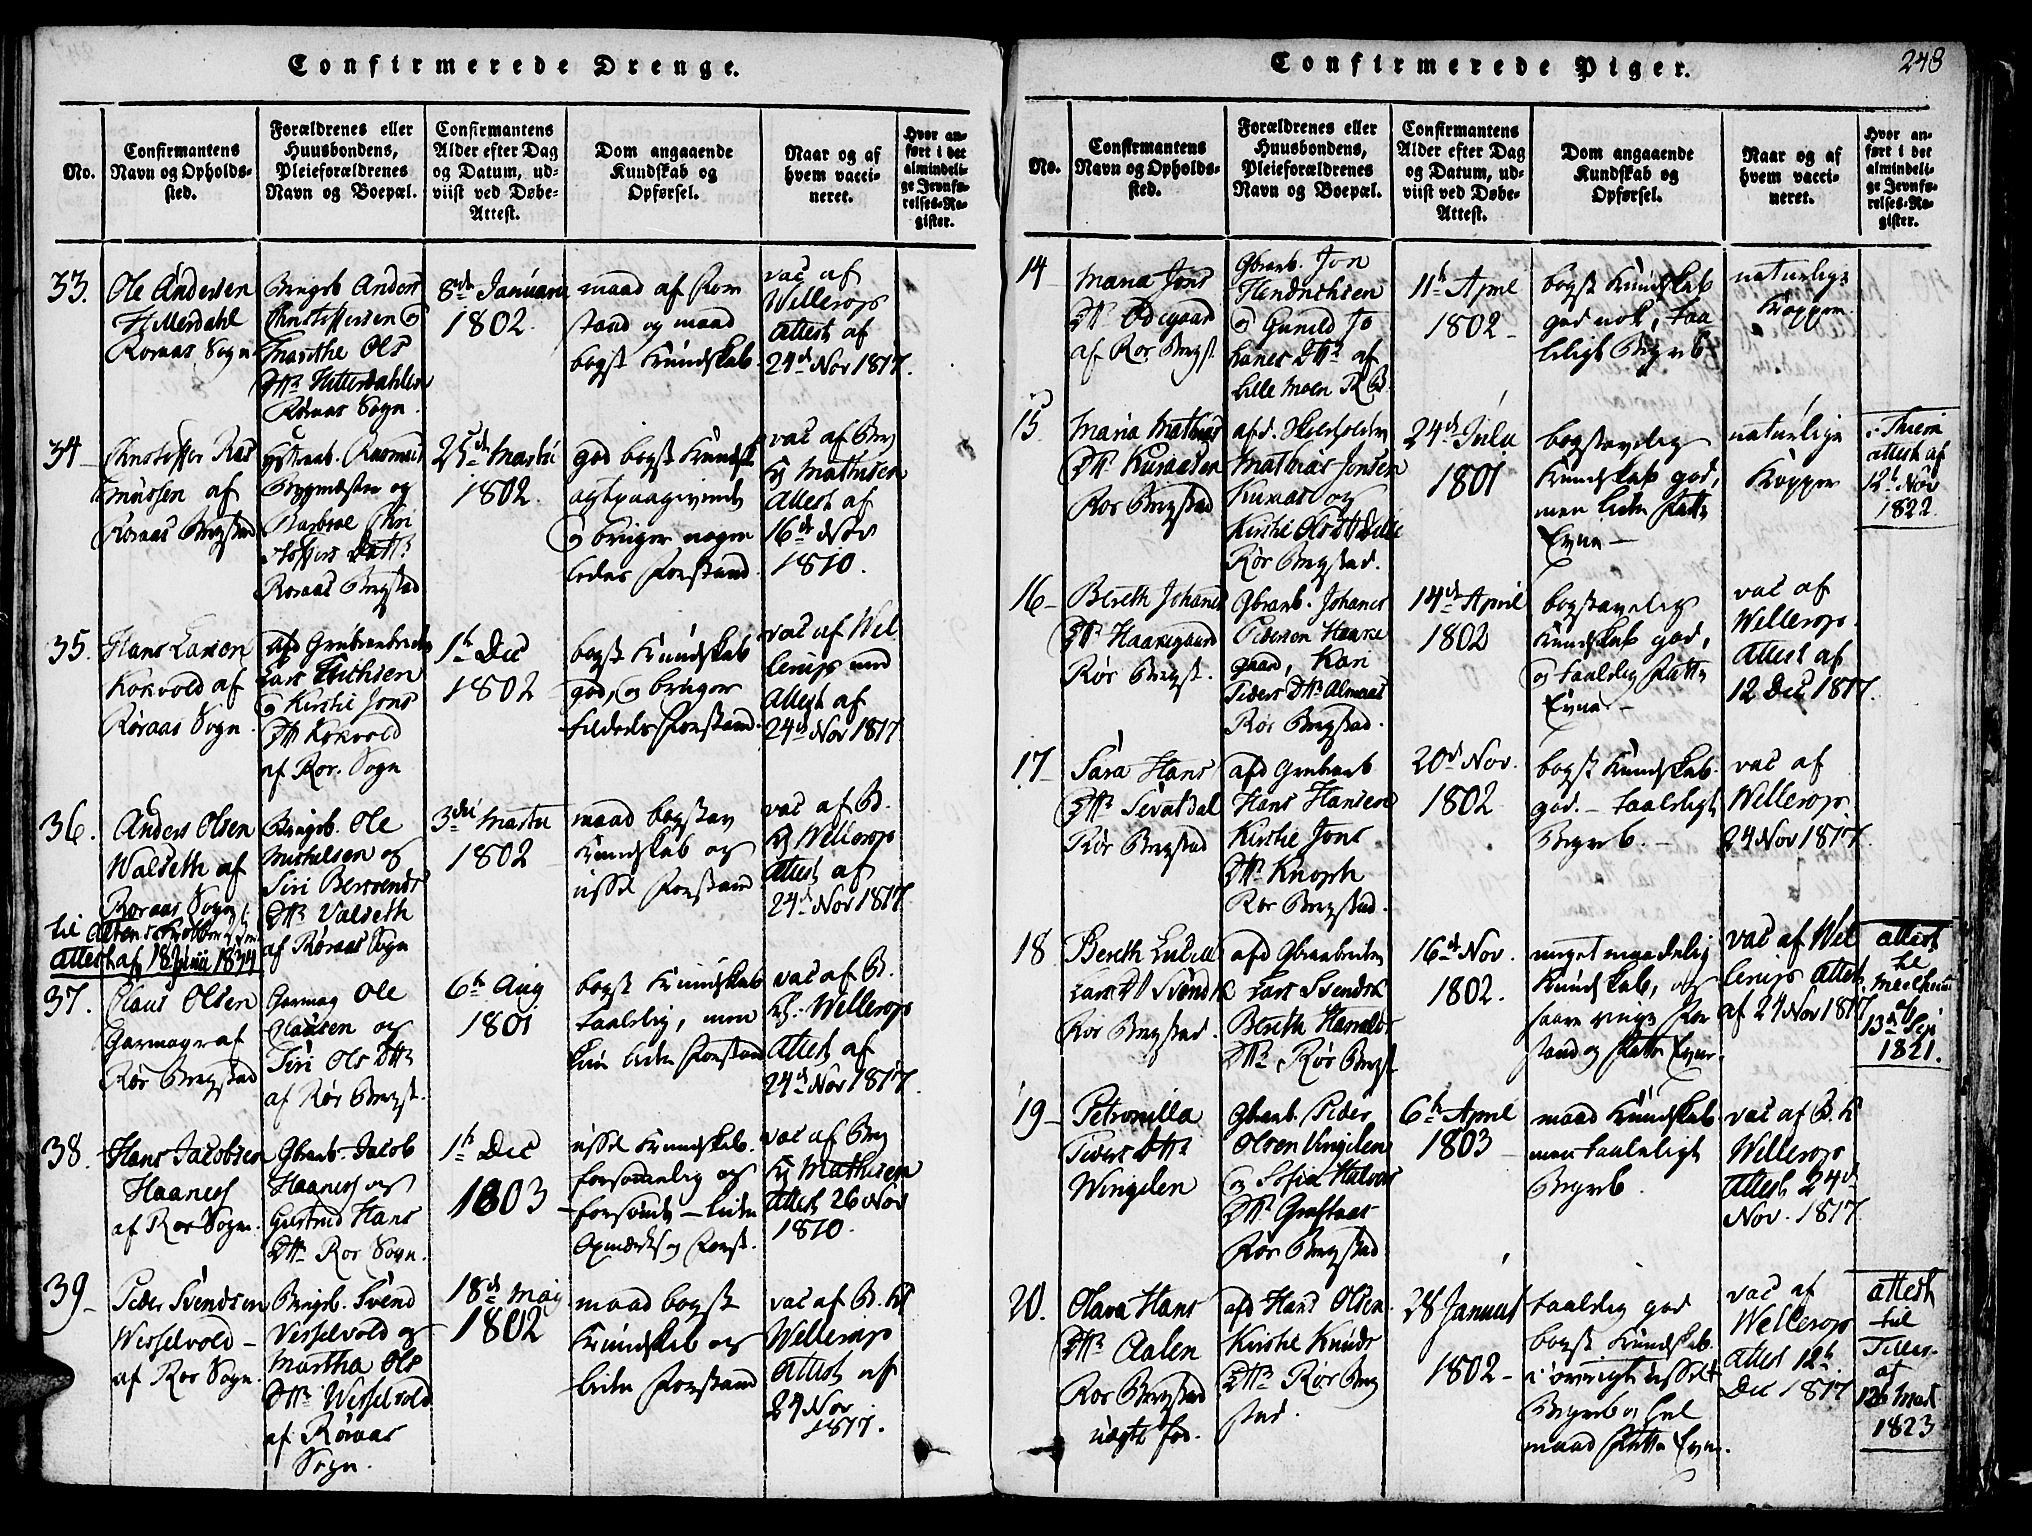 Confirmerede Drenge.
No.
Confirmantens
Navn og Opholds-
sted.
Forældrenes eller
Huusbondens,
Pleieforældrenes
Navn og Boepæl.
Confirmantens
Alder efter Dag
og Datum, ud-
viist ved Døbe-
Attest.
Dom angaaende
Kundskab og
Opførsel.
Naar og af
hvem vacci-
neret.
Hvor an-
ført i det
almindeli-
ge Jevnfø-
relses-Re-
gister.
33.
Ole Andersen
Hitterdahl
Røraas Sogn
Anders
Christoffersen
Marthe Ols
Dttr Hitterdahlen
Røraas Sogn.
8de Januarii
1802.
maad af For
stand og maad
bogst Kundskab.
vac af
Wellerop
attest af
24d Nov 1817.
34
Christoffer Ras
mussen af
Røraas Bergstad
Rasmus
Bygmæster og
Chri
stoffers Dattr
Røraas Bergstad
25de Martii
1802.
god bogst Kundsk
og bruger nogen
ledes Forstand.
vac af Berg
Mathisen
Attest af
16de Nov
1810.
35.
Hans Larsen
Kokvold af
Røraas Sogn
Lars
Kirstie Jons
Dttr Kokvold
af Rør. Sogn
1te Dec
1802
bogst Kundskab
god, og bruger
Forstand.
vac af Wel
lerup med
Attest af
24d Nov 1817
36.
Anders Olsen
Waldseth af
Røraas Sogn
Ole
Michelsen og
Siri
Dttr Valseth
af Røraas Sogn
3die Martii
1802
maad bogstav
Kundskab og
Forstand
vac af B.
Wellerop
Attest af
24d Nov 1817
til Alten
attest af 18 Junii 1834
37.
Claus Olsen
Garmager af
Rør Bergstad
Garmag Ole
Clausen og
Siri Ols Dttr
af Rør Bergst.
6te Aug
1801
bogst Kundskab
taalelig, men
liden Forstand
vac af B.
Wellerop
Attest af
24d Nov 1817.
38.
Hans Jacobsen
Haanes
af Rør Sogn.
Jacob
Haanes og
Hans
Dttr Rør Sogn.
1te Dec
1803
Kundskab.
forsømmelig og
forsømt - liden
Forst.
vac af Berg
Mathisen
Attest 26 Nov
1810.
39
Peder Svendsen
Wesselvold -
af Rør Sogn.
Svend
Vesselvold og
Martha Ols
Dttr Wesselvold
af Røraas
Sogn.
18de Maj
1802
maad bogst
Kundskab og
liden Forstand
vac af B.
Wellerop
Attest af
24 Nov
1817.
Confirmerede Piger.
248
No.
Confirmantens
Navn og Opholds-
sted.
Forældrenes eller
Huusbondens,
Pleieforældrenes
Navn og Boepæl.
Confirmantens
Alder efter Dag
og Datum, ud-
viist ved Døbe-
Attest.
Dom angaaende
Kundskab og
Opførsel.
Naar og af
hvem vacci-
neret.
Hvor an-
ført i det
almindeli-
ge Jevnfø-
relses-Re-
gister.
14
Maria Jons
Dttr Ødegaard
af Rør Bergst
Jon
Hendrichsen
Gunild Jo
hanes Dttr af
Lille Moen R B.
11te April
1802
bogst Kundskab
god nok, taa
leligt Begreb
naturlige
Kopper.
15
Maria Mathias
Dttr Kuraasen
Rør Bergstad
Mathias Jonsen
Kuraas og
Kirstie
Rør Bergstad.
24de Julii
1801
bogstavelig
Kundskab god,
men liden Fatte
Evne -
naturlige
Kopper
attest af
12te Nov
1822.
16
Bereth Johanes
Dttr Haanegaard
Rør Bergst.
Johanes
Pedersen Haane
gaard, Kari
Peders Dttr Almaas
Rør Bergstad.
14de April
1802
bogstavelig
Kundskab god,
og taalelig Fatte
Evne -
vac af
Wellerop
Attest af
12 Dec 1817.
17
Sara Hans
Dttr Sevatdal
Rør Bergstad
Hans Hansen
Kirstie Jons
Dttr Knoph
Rør Bergstad.
20d Nov.
1802
bogst Kundskab
god. - taaleligt
Begreb. -
vac af
Wellerop
24 Nov 1817.
18
Bereth
Lars Dtt Svendsk
Rør Bergstad.
Lars Svendsk
Bereth
Dttr Rør Bergst
16de Nov.
1802.
meget maadelig
Kundskab, og
saare ringe For
stand og Fatte Evne.
vac af Wel
lerup Attest
af 24 Nov 1817
attest
til
af
13de Sep
1821.
19
Petronilla
Peders Dttr
Wingelen
Peder
Olsen Vingelen
Sofia Halvors
Dttr
Rør Bergstad
6te April
1803
maad Kundskab
men taaleligt
Begreb.
vac af B. K
Wellerop
Attest 24d
Nov. 1817
20.
Olava Hans
Dttr Aalen
Rør Bergstad
uægte fød.
Hans Olsen
Kirstie Knuds
Dttr Rør Berg
stad.
28 Januar
1802
taalelig god
bogst Kundskab.
i øvrigt usselt
Begreb
maad Fatte Evne.
vac af
Wellerop
Attest 12te
Dec 1817
attest
til
af
1823